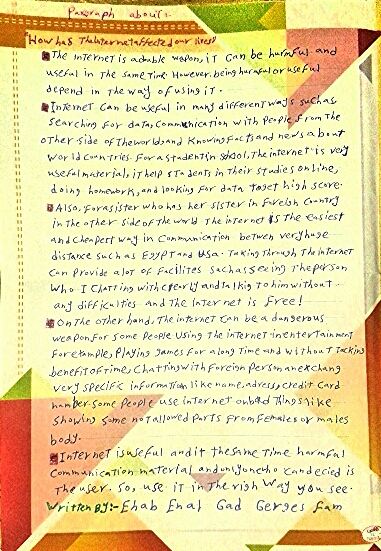 Paragraph about:-
"How has The Internet affected our lives?"
The Internet is a duble weapon, it Can be harmful and
useful in The same Time. However, being harmful or useful
depend in The way of using it.
Internet Can be useful in many different ways such as
searching For data, Communication with People From The
other side of The world, and Knowing Facts and news about
World Countries. For a student in school, The internet is very
useful material, it help students in their studies online,
doing homework, and looking for data to get high score.
Also, For a sister who has her sister in Foreign Country
in the other side of the world The internet is The easiest
and Cheapest way in Communication betwen very huge
distance such as Egypt and USA. Taking Through The internet
Can Provide a lot of Facilites such as seeing The person
Who I Chatting with clearly and talking to him without
any difficulties and The Internet is Free!
On the other hand, The internet Can be a dangerous
weapon For some People Using The internet in entertainment
For example, Playing games For a long Time and without Tacking
benefit of Time, Chatting with Foreign Person and exchang
very specific information like name, adress, credit Card
number. Some People use internet on bad Things like
showing some not allowed Parts From Females or males
body.
Internet is useful and it the same Time harmful
Communication material and only one who can decied is
The user. So, use it in The righ Way you see.
Written By:- Ehab Enal Gad Gerges Fam